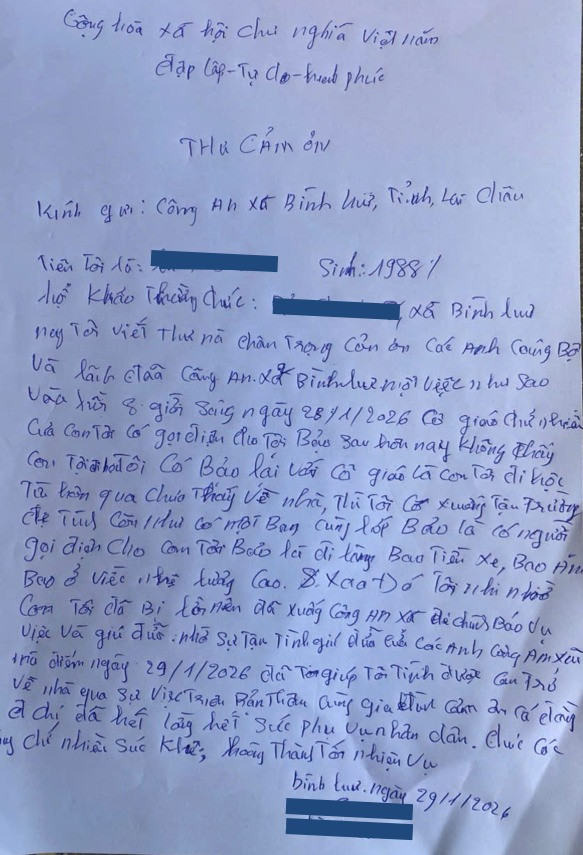 Cộng hòa xã hội chủ nghĩa Việt Nam
độp lập-Tự Do-hạnh phúc
THƯ CẢM ƠN
Kính gửi: Công An xã Bình Lư, Tỉnh, Lai Châu
Tiên Tôi là: Sinh: 1988
hộ Khảo Thường Chúc: xã Bình Lư
nay Tôi viết Thư nà chân Trọng cảm ơn các Anh
Và lãnh đạo Công An xã Bình Lư một việc như sao
Vào hồi 8 giờ sáng ngày 28/1/2026 Cô giáo chủ nhiệm
của con Tôi có gọi điện cho Tôi Bảo sau hôm nay không thấy
con Tôi đi học Tôi Có Bảo lại với Cô giáo là con Tôi đi học
Từ hôm qua chưa Thấy về nhà, Thì Tôi có xuống Tận Trường
để Tình có một Bạn cùng lớp Bảo là có người
gọi điện cho con Tôi Bảo là đi làng Bao Tiền xe, Bao Ăn
Bao ở việc nhẹ lương cao. Tôi nhi
Con Tôi đã Bị nên đã xuống Công An xã Báo Vụ
Việc và giú đỡ. nhờ Sự Tận Tình giú đỡ của các Anh Công An
mà điểm ngày 29/1/2026 đã giúp Tôi Tình được con Trở
về nhà qua sự Việc Trên Bản Thân cùng gia đình cảm ơn cá đồng
chí đã hết lòng hết sức phụ vụ nhân dân. Chúc các
chí nhiều sức hoàng Thàng Tốt nhiện Vụ
bình Lư. ngày 29/1/2026